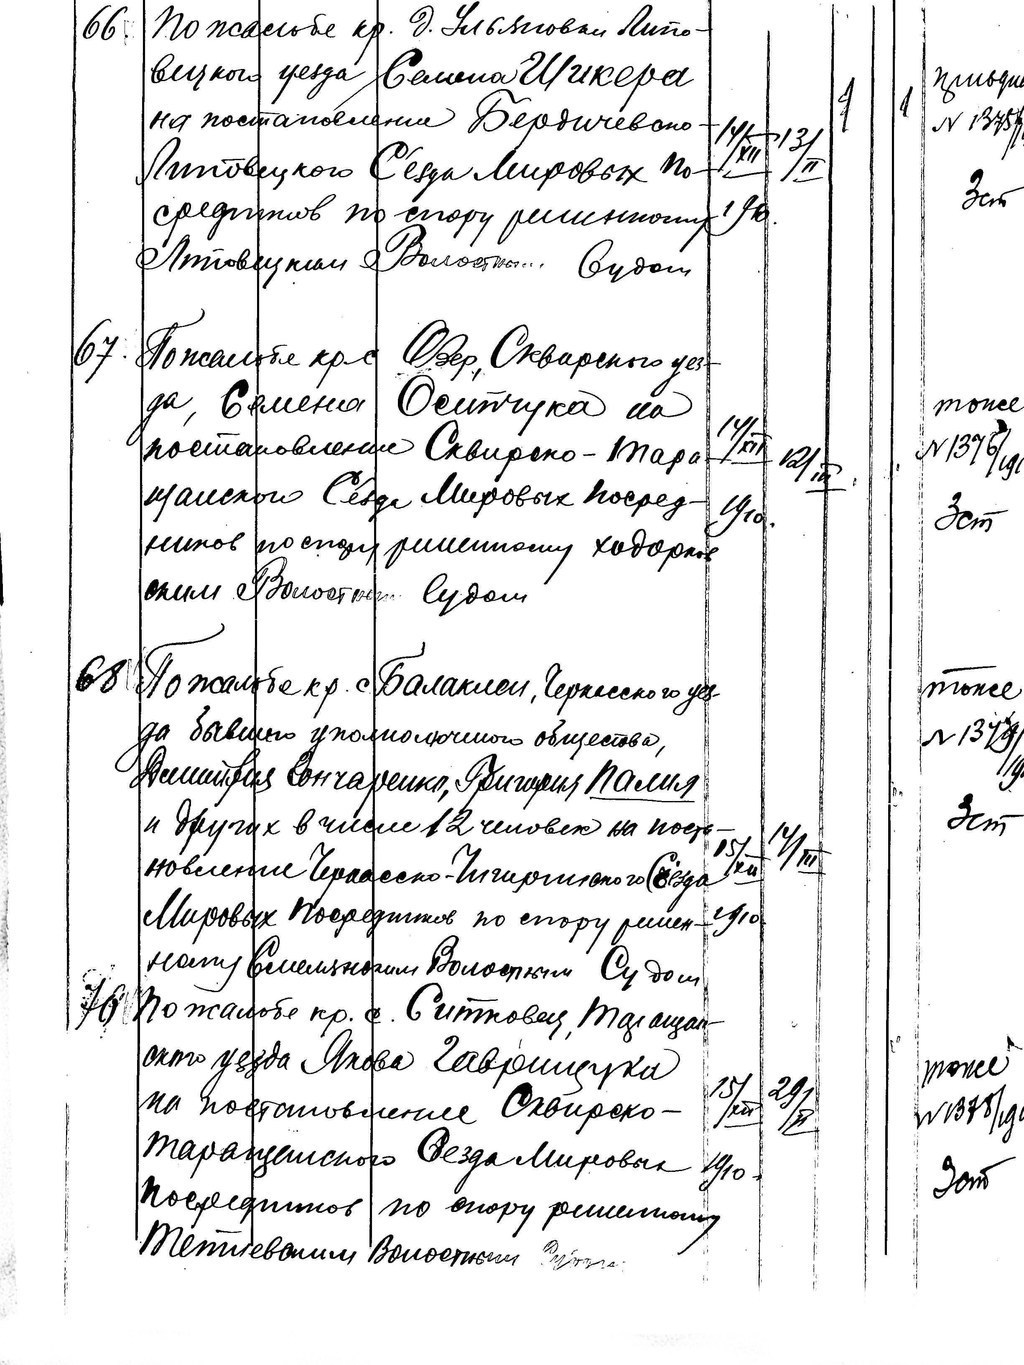 66. По жалобе кр. д. Ульяновки Липо-
вецкого уезда Семена Шикера
на постановление Бердичевско-
Липовецкого Съезда Мировых По-
средников по спору решенному
Липовецким Волостн... Судом
14/XII 1910. 13/II
1 1
приоди
N 1375/
3 ст
67. По жалобе кр. с Озер, Сквирского уез-
да, Семена Осипчука на
постановление Сквирско-Тара
щанского Съезда Мировых Посред-
ников по спору решенному ходорков
ским Волостным Судом
14/XII 1910. 12/III
тоже
N 1376/191
3 ст
68 По жалобе кр. с Балаклеи, Черкасского уез-
да бывшего уполномоченного общества,
Дмитрия Гончаренко, Григория Палия
и других в числе 12 человек на поста-
новление Черкасско-Чигиринского Съезда
Мировых Посредников по спору решен-
ному Смелянским Волостным Судом
15/XII 1910 14/III
тоже
N 1379/
3 ст
70 По жалобе кр. с. Ситковец, Таращан-
ского уезда Якова Гаврищука
на постановление Сквирско-
Таращанского Съезда Мировых
Посредников по спору решенному
Тетиевским Волостным Судом
15/XII 1910. 29/II
тоже
N 1378/191
3 ст